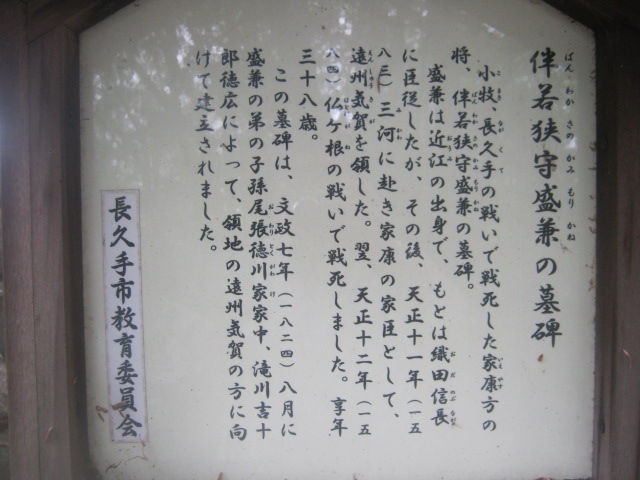 伴若狭守盛兼の墓碑
小牧、長久手の戦いで戦死した家康方の
将、伴若狭守盛兼の墓碑。
盛兼は近江の出身で、もとは織田信長
に臣従したが、その後、天正十一年（一五
八三）三河に赴き家康の家臣として、
遠州気賀を領した。翌、天正十二年（一五
八四）仏ケ根の戦いで戦死しました。享年
三十八歳。
この墓碑は、文政七年（一八二四）八月に
盛兼の弟の子孫尾張徳川家家中、滝川吉十
郎徳広によって、領地の遠州気賀の方に向
けて建立されました。
長久手市教育委員会